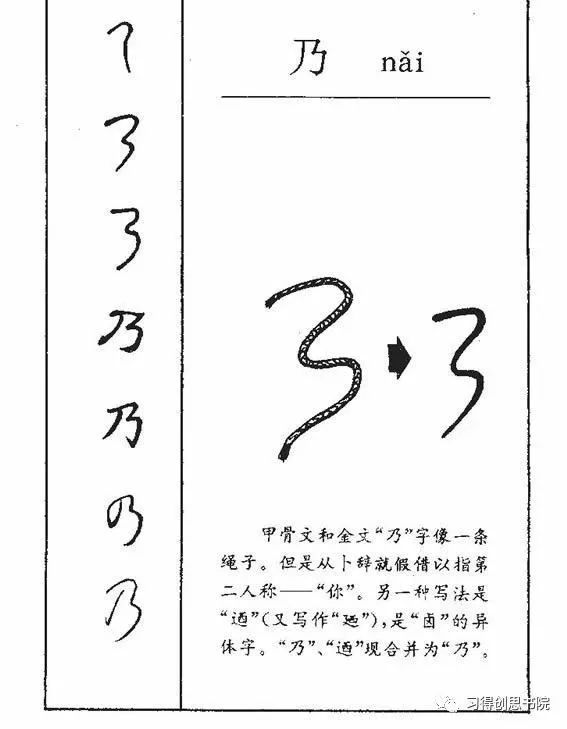 乃 nǎi
乃
乃
乃
乃
甲骨文和金文“乃”字像一条
绳子。但是从卜辞就假借以指第
二人称——“你”。另一种写法是
“迺”(又写作“廼”),是“卤”的异
体字。“乃”、“迺”现合并为“乃”。
习得创思书院